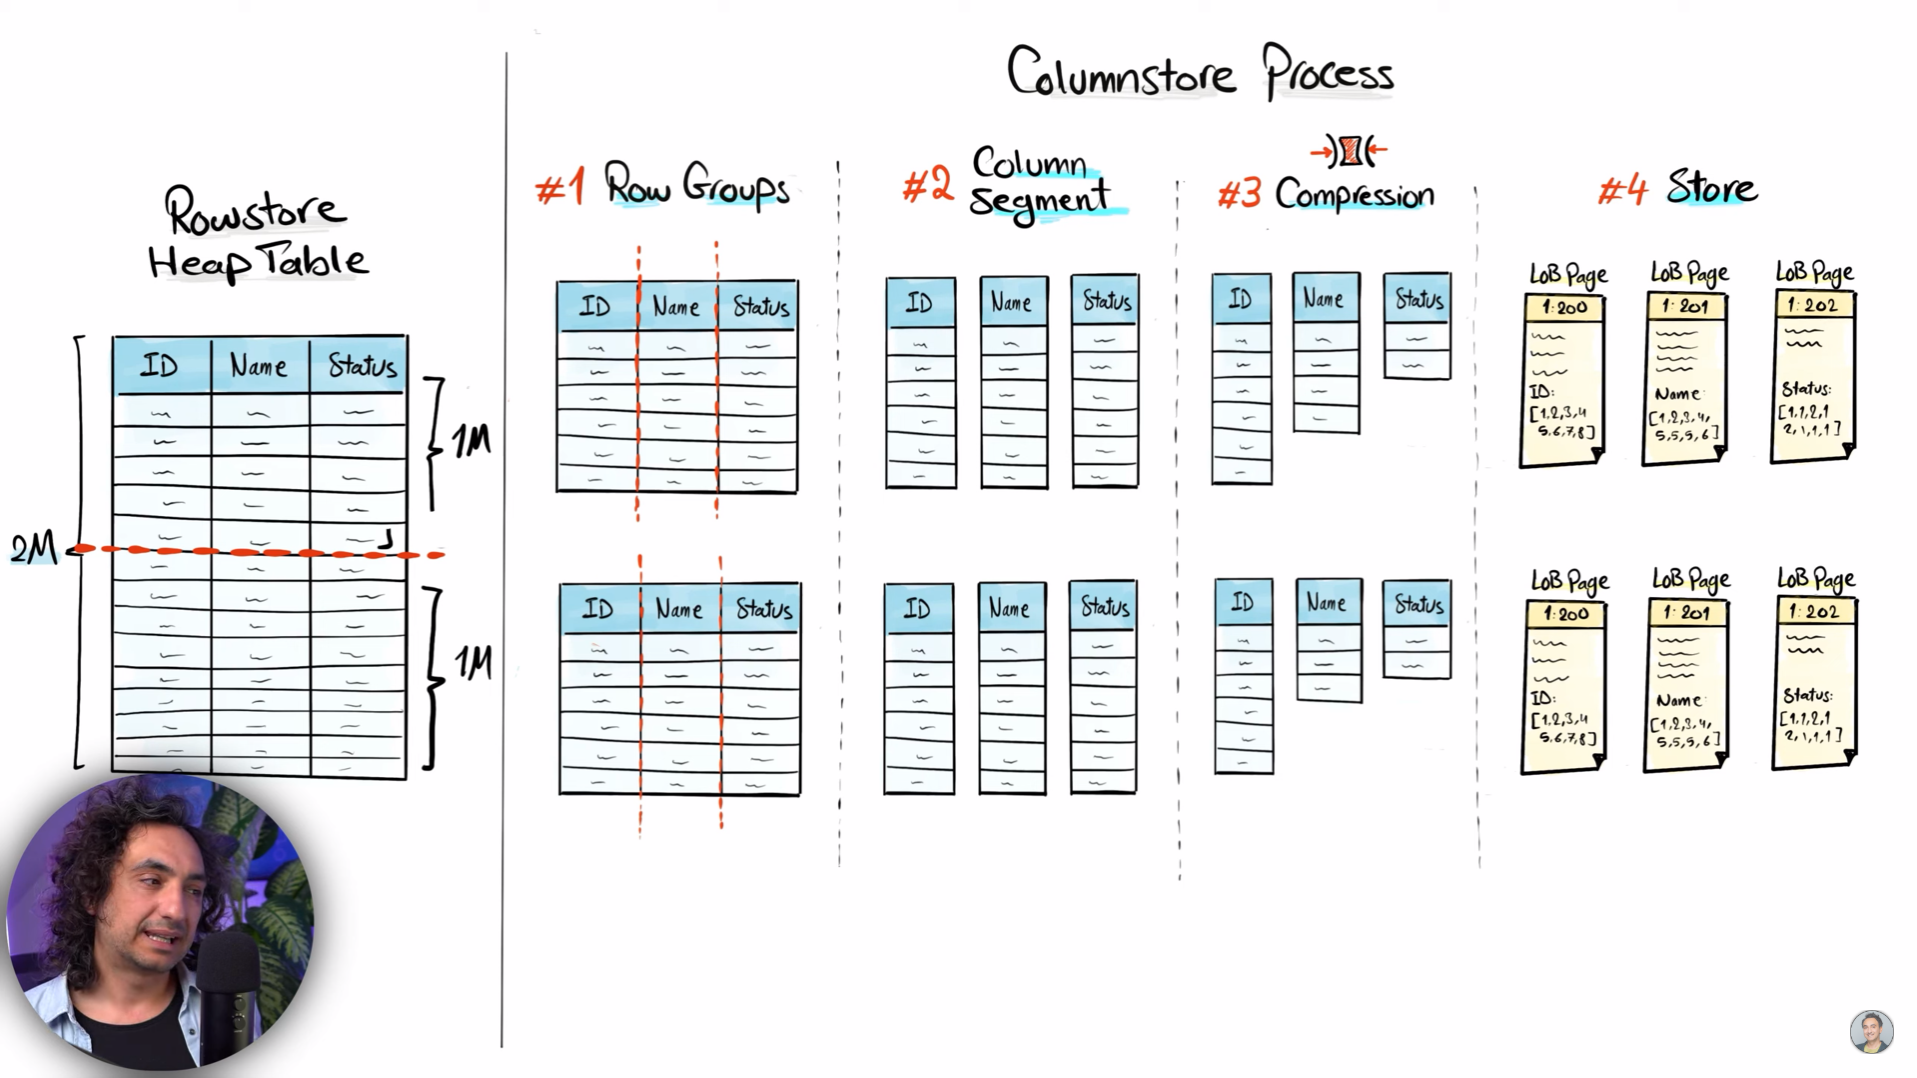 Columnstore Process
Rowstore
Heap Table
ID Name Status
2M
1M
1M
#1 Row Groups
ID Name Status
ID Name Status
#2 Column
Segment
ID Name Status
ID Name Status
#3 Compression
ID Name Status
ID Name Status
#4 Store
LoB Page
1:200
ID:
[1,2,3,4
5,6,7,8]
LoB Page
1:201
Name:
[1,2,3,4,
5,5,5,6]
LoB Page
1:202
Status:
[1,1,2,1
2,1,1,1]
LoB Page
1:200
ID:
[1,2,3,4
5,6,7,8]
LoB Page
1:201
Name:
[1,2,3,4,
5,5,5,6]
LoB Page
1:202
Status:
[1,1,2,1
2,1,1,1]